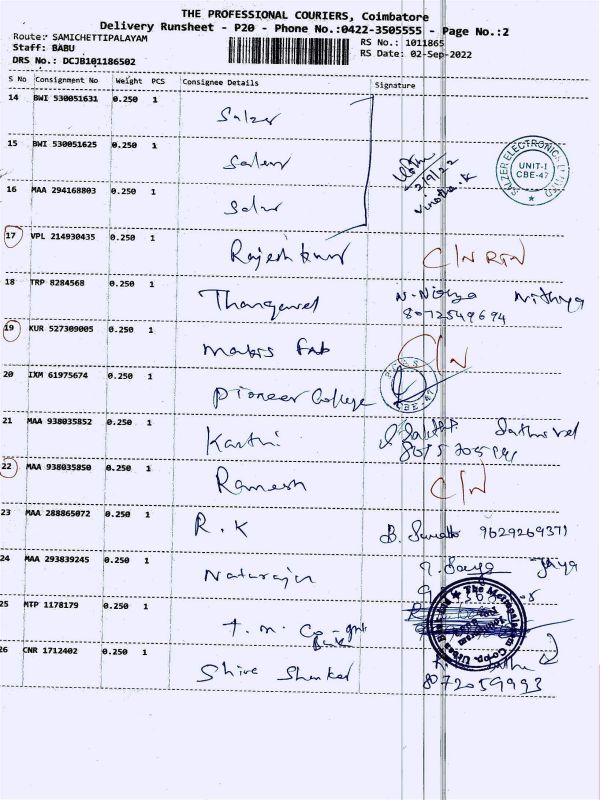 THE PROFESSIONAL COURIERS, Coimbatore
Delivery Runsheet - P20 - Phone No.:0422-3505555 - Page No.:2
Route: SAMICHETTIPALAYAM
RS No.: 1011865
Staff: BABU
RS Date: 02-Sep-2022
DRS No.: DCJB101186502
S No Consignment No Weight PCS Consignee Details Signature
14 BWI 530051631 0.250 1 Salzer
15 BWI 530051625 0.250 1 Salzer
2/9/22
Vinotha.K
SALZER ELECTRONICS LTD
UNIT-I
CBE-47
16 MAA 294168803 0.250 1 Salzer
17 VPL 214930435 0.250 1 Rajeshkumar C/N RTN
18 TRP 8284568 0.250 1 Thangavel N. Nithya Nithya
8072549694
19 KUR 527309005 0.250 1 C/N
20 IXM 61975674 0.250 1 Pioneer College
CBE-47
21 MAA 938035852 0.250 1 Karthi Sathivel
22 MAA 938035850 0.250 1 Ramesh C/N
23 MAA 288865072 0.250 1 R.K 9629269371
24 MAA 293839245 0.250 1 Natarajan
25 MTP 1178179 0.250 1 T.M. Co-op
Bank
26 CNR 1712402 0.250 1 Shiva Shankar
8072059993